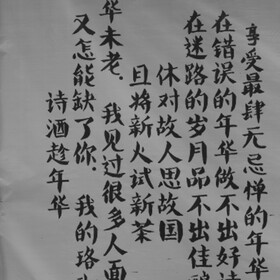 享受最肆无忌惮的年华
在错误的年华做不出好诗
在迷路的岁月品不出佳酿
休对故人思故国
且将新火试新茶
华未老。我见过很多人面
又怎能缺了你。我的珞
诗酒趁年华